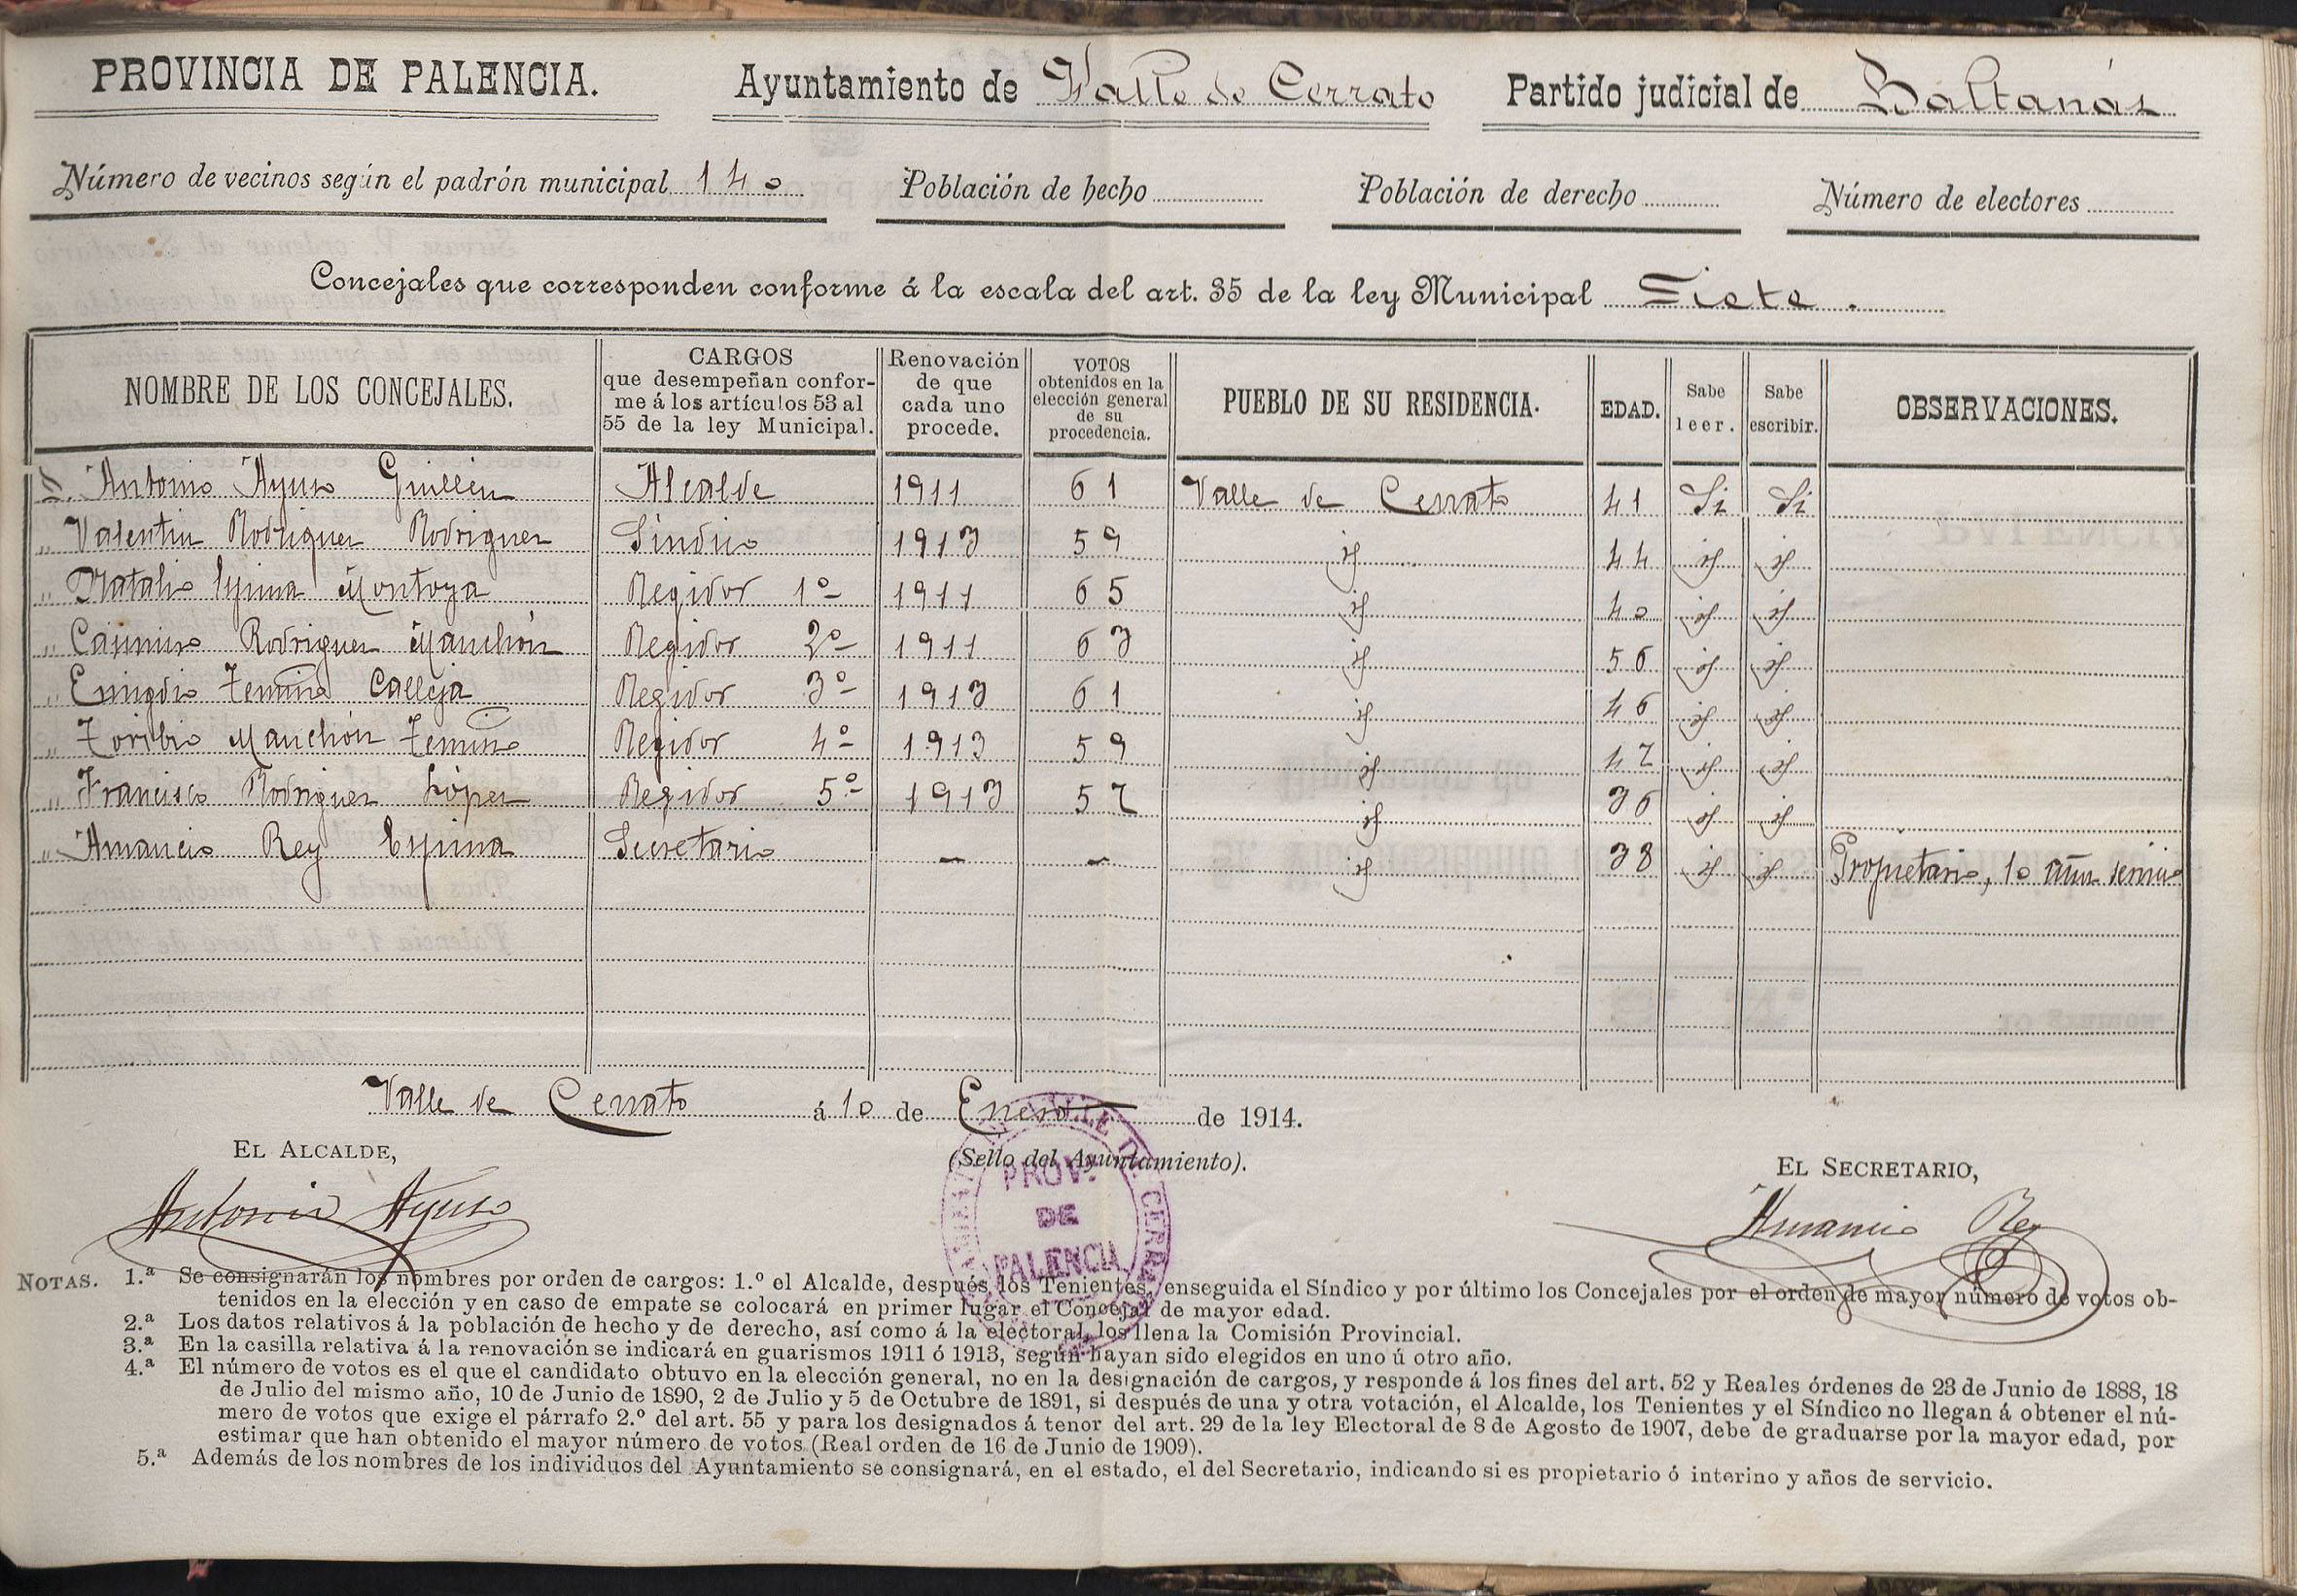 PROVINCIA DE PALENCIA. Ayuntamiento de Valle de Cerrato Partido judicial de Baltanás
Número de vecinos según el padrón municipal 140 Población de hecho Población de derecho Número de electores
Concejales que corresponden conforme á la escala del art. 35 de la ley Municipal Siete.
NOMBRE DE LOS CONCEJALES.
CARGOS
que desempeñan confor-
me á los artículos 53 al
55 de la ley Municipal.
Renovación
de que
cada uno
procede.
VOTOS
obtenidos en la
elección general
de su
procedencia.
PUEBLO DE SU RESIDENCIA.
EDAD.
Sabe
leer.
Sabe
escribir.
OBSERVACIONES.
D. Antonio Ayuso Guillén Alcalde 1911 61 Valle de Cerrato 41 Si Si
" Valentin Rodriguez Rodriguez Síndico 1913 59 id 44 id id
" Natalio Espina Montoya Regidor 1º 1911 65 id 40 id id
" Casimiro Rodriguez Manchón Regidor 2º 1911 63 id 56 id id
" Emigdio Temiño Calleja Regidor 3º 1913 61 id 46 id id
" Toribio Manchón Temiño Regidor 4º 1913 59 id 47 id id
" Francisco Rodriguez López Regidor 5º 1913 57 id 36 id id
" Amancio Rey Espina Secretario — — id 38 id id Propietario, 10 años servicio
Valle de Cerrato á 10 de Enero de 1914.
EL ALCALDE,
(Sello del Ayuntamiento).
EL SECRETARIO,
PROV.
DE
PALENCIA
Antonio Ayuso
Amancio Rey
NOTAS. 1.ª Se consignarán los nombres por orden de cargos: 1.º el Alcalde, después los Tenientes, enseguida el Síndico y por último los Concejales por el orden de mayor número de votos ob-
tenidos en la elección y en caso de empate se colocará en primer lugar el Concejal de mayor edad.
2.ª Los datos relativos á la población de hecho y de derecho, así como á la electoral, los llena la Comisión Provincial.
3.ª En la casilla relativa á la renovación se indicará en guarismos 1911 ó 1913, según hayan sido elegidos en uno ú otro año.
4.ª El número de votos es el que el candidato obtuvo en la elección general, no en la designación de cargos, y responde á los fines del art. 52 y Reales órdenes de 23 de Junio de 1888, 18
de Julio del mismo año, 10 de Junio de 1890, 2 de Julio y 5 de Octubre de 1891, si después de una y otra votación, el Alcalde, los Tenientes y el Síndico no llegan á obtener el nú-
mero de votos que exige el párrafo 2.º del art. 55 y para los designados á tenor del art. 29 de la ley Electoral de 8 de Agosto de 1907, debe de graduarse por la mayor edad, por
estimar que han obtenido el mayor número de votos (Real orden de 16 de Junio de 1909).
5.ª Además de los nombres de los individuos del Ayuntamiento se consignará, en el estado, el del Secretario, indicando si es propietario ó interino y años de servicio.